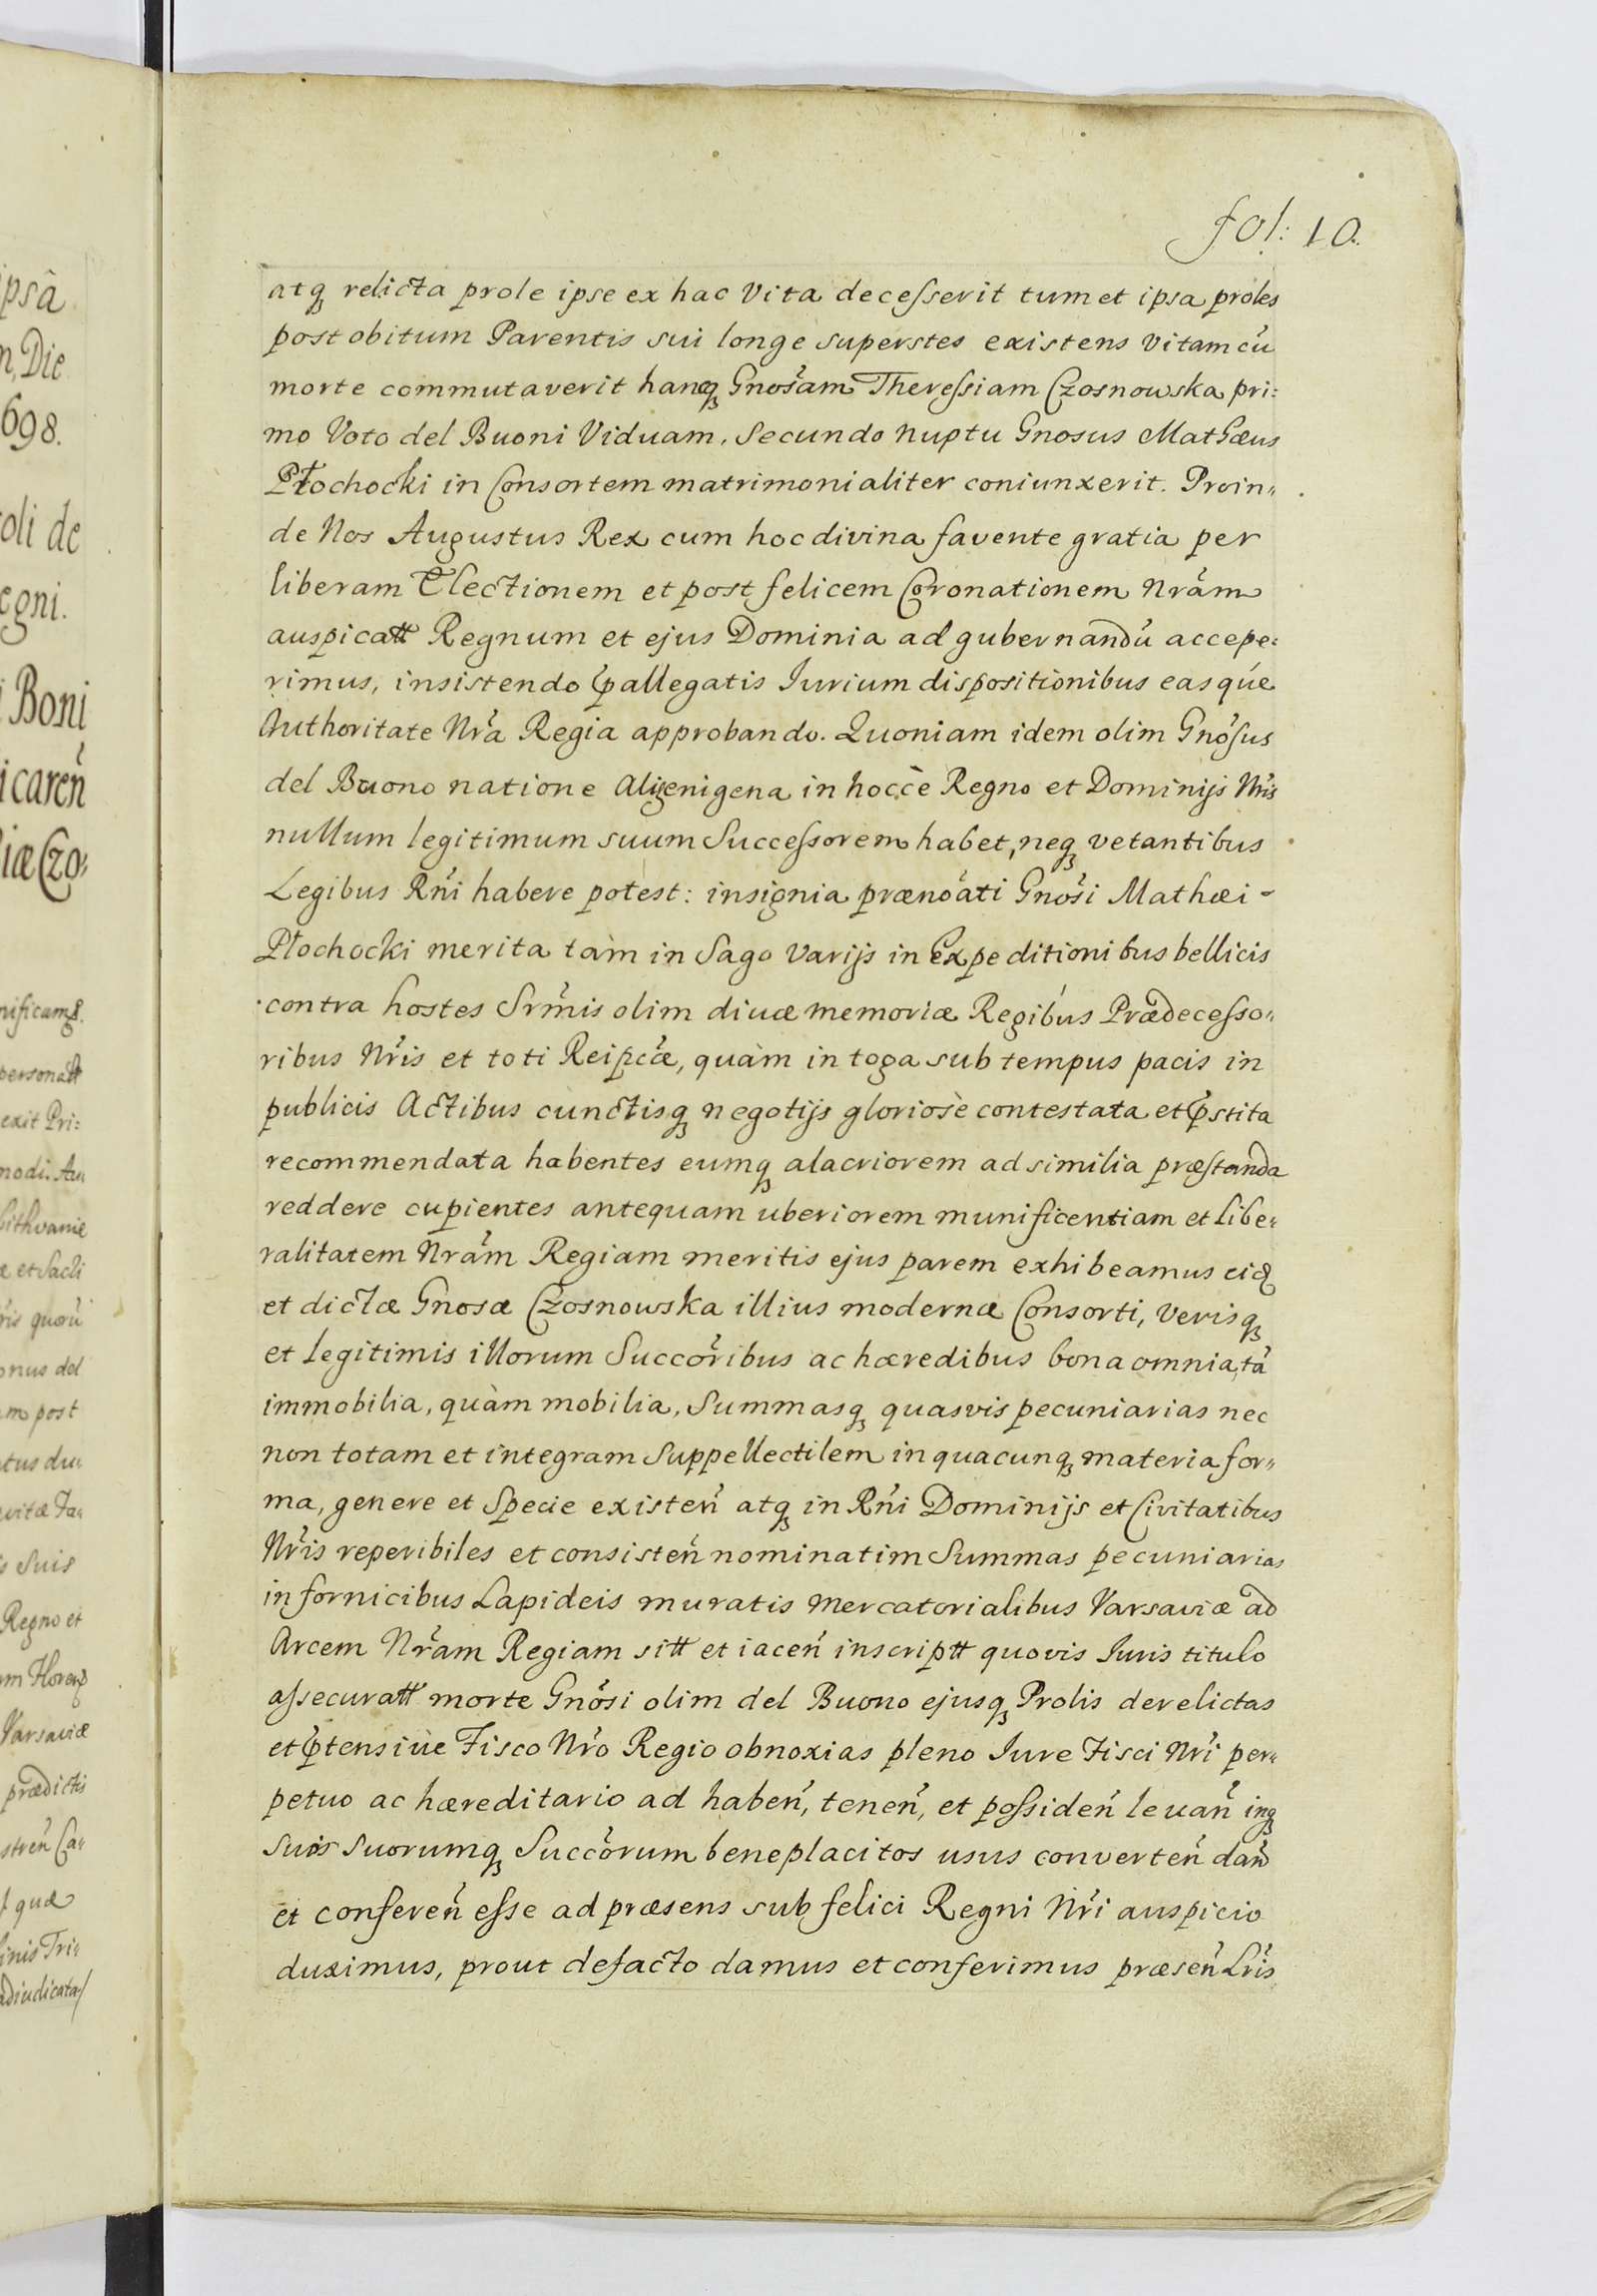 fol: 10.
atq relicta prole ipse ex hac Vita decesserit tum et ipsa proles
post obitum Parentis sui longe superstes existens Vitam cũ
morte commutaverit hanq Gnosam Theressiam Czosnowska pri:
mo Voto del Buoni Viduam, Secundo nuptu Gnosus Mathæus
Płochocki in Consortem matrimonialiter coniunxerit. Proin„
de Nos Augustus Rex cum hoc divina favente gratia per
liberam Electionem et post felicem Coronationem Nram
auspicatt Regnum et ejus Dominia ad gubernandũ accepe:
rimus, insistendo p̃allegatis Iurium dispositionibus easq́ue
Authoritate Nra Regia approbando. Quoniam idem olim Gnosus
del Buono natione Aligenigena in hoccè Regno et Dominijs Nris
nullum legitimum suum Successorem habet, neq vetantibus
Legibus Rni habere potest: insignia prænoati Gnosi Mathæi -
Płochocki merita tàm in Sago Varijs in Expeditionibus bellicis
contra hostes Srmis olim divæ memoriæ Regibus Prædecesso„
ribus Nris et toti Reipcæ, quàm in toga sub tempus pacis in
publicis Actibus cunctisq negotijs gloriosè contestata et p̃stita
recommendata habentes eumq alacriorem ad similia præstanda
reddere cupientes antequam uberiorem munificentiam et libe:
ralitatem Nram Regiam meritis ejus parem exhibeamus eid
et dictæ Gnosæ Czosnowska illius modernæ Consorti, Verisq
et legitimis illorum Succoribus ac hæredibus bona omnia tã
immobilia, quàm mobilia, Summasq quasvis pecuniarias nec
non totam et integram Suppellectilem in quacunq materia for„
ma, genere et Specie existen̄ atq in Rni Dominijs et Civitatibus
Nris reperibiles et consisten̄ nominatim Summas pecuniarias
in fornicibus Lapideis muratis Mercatorialibus Varsaviæ ad
Arcem Nram Regiam sitt et iacen̄ inscriptt quovis Iuris titulo
assecuratt morte Gnosi olim del Buono ejusq Prolis derelictas
et p̃tensivè Fisco Nro Regio obnoxias pleno Iure Fisci Nri per„
petuo ac hæreditario ad haben̄, tenen̄, et possiden̄ levan̄ inq
suos suorumq Succorum beneplacitos usus converten̄ dan̄
et conferen̄ esse ad præsens sub felici Regni Nri auspicio
duximus, prout defacto damus et conferimus præsen̄ Lris